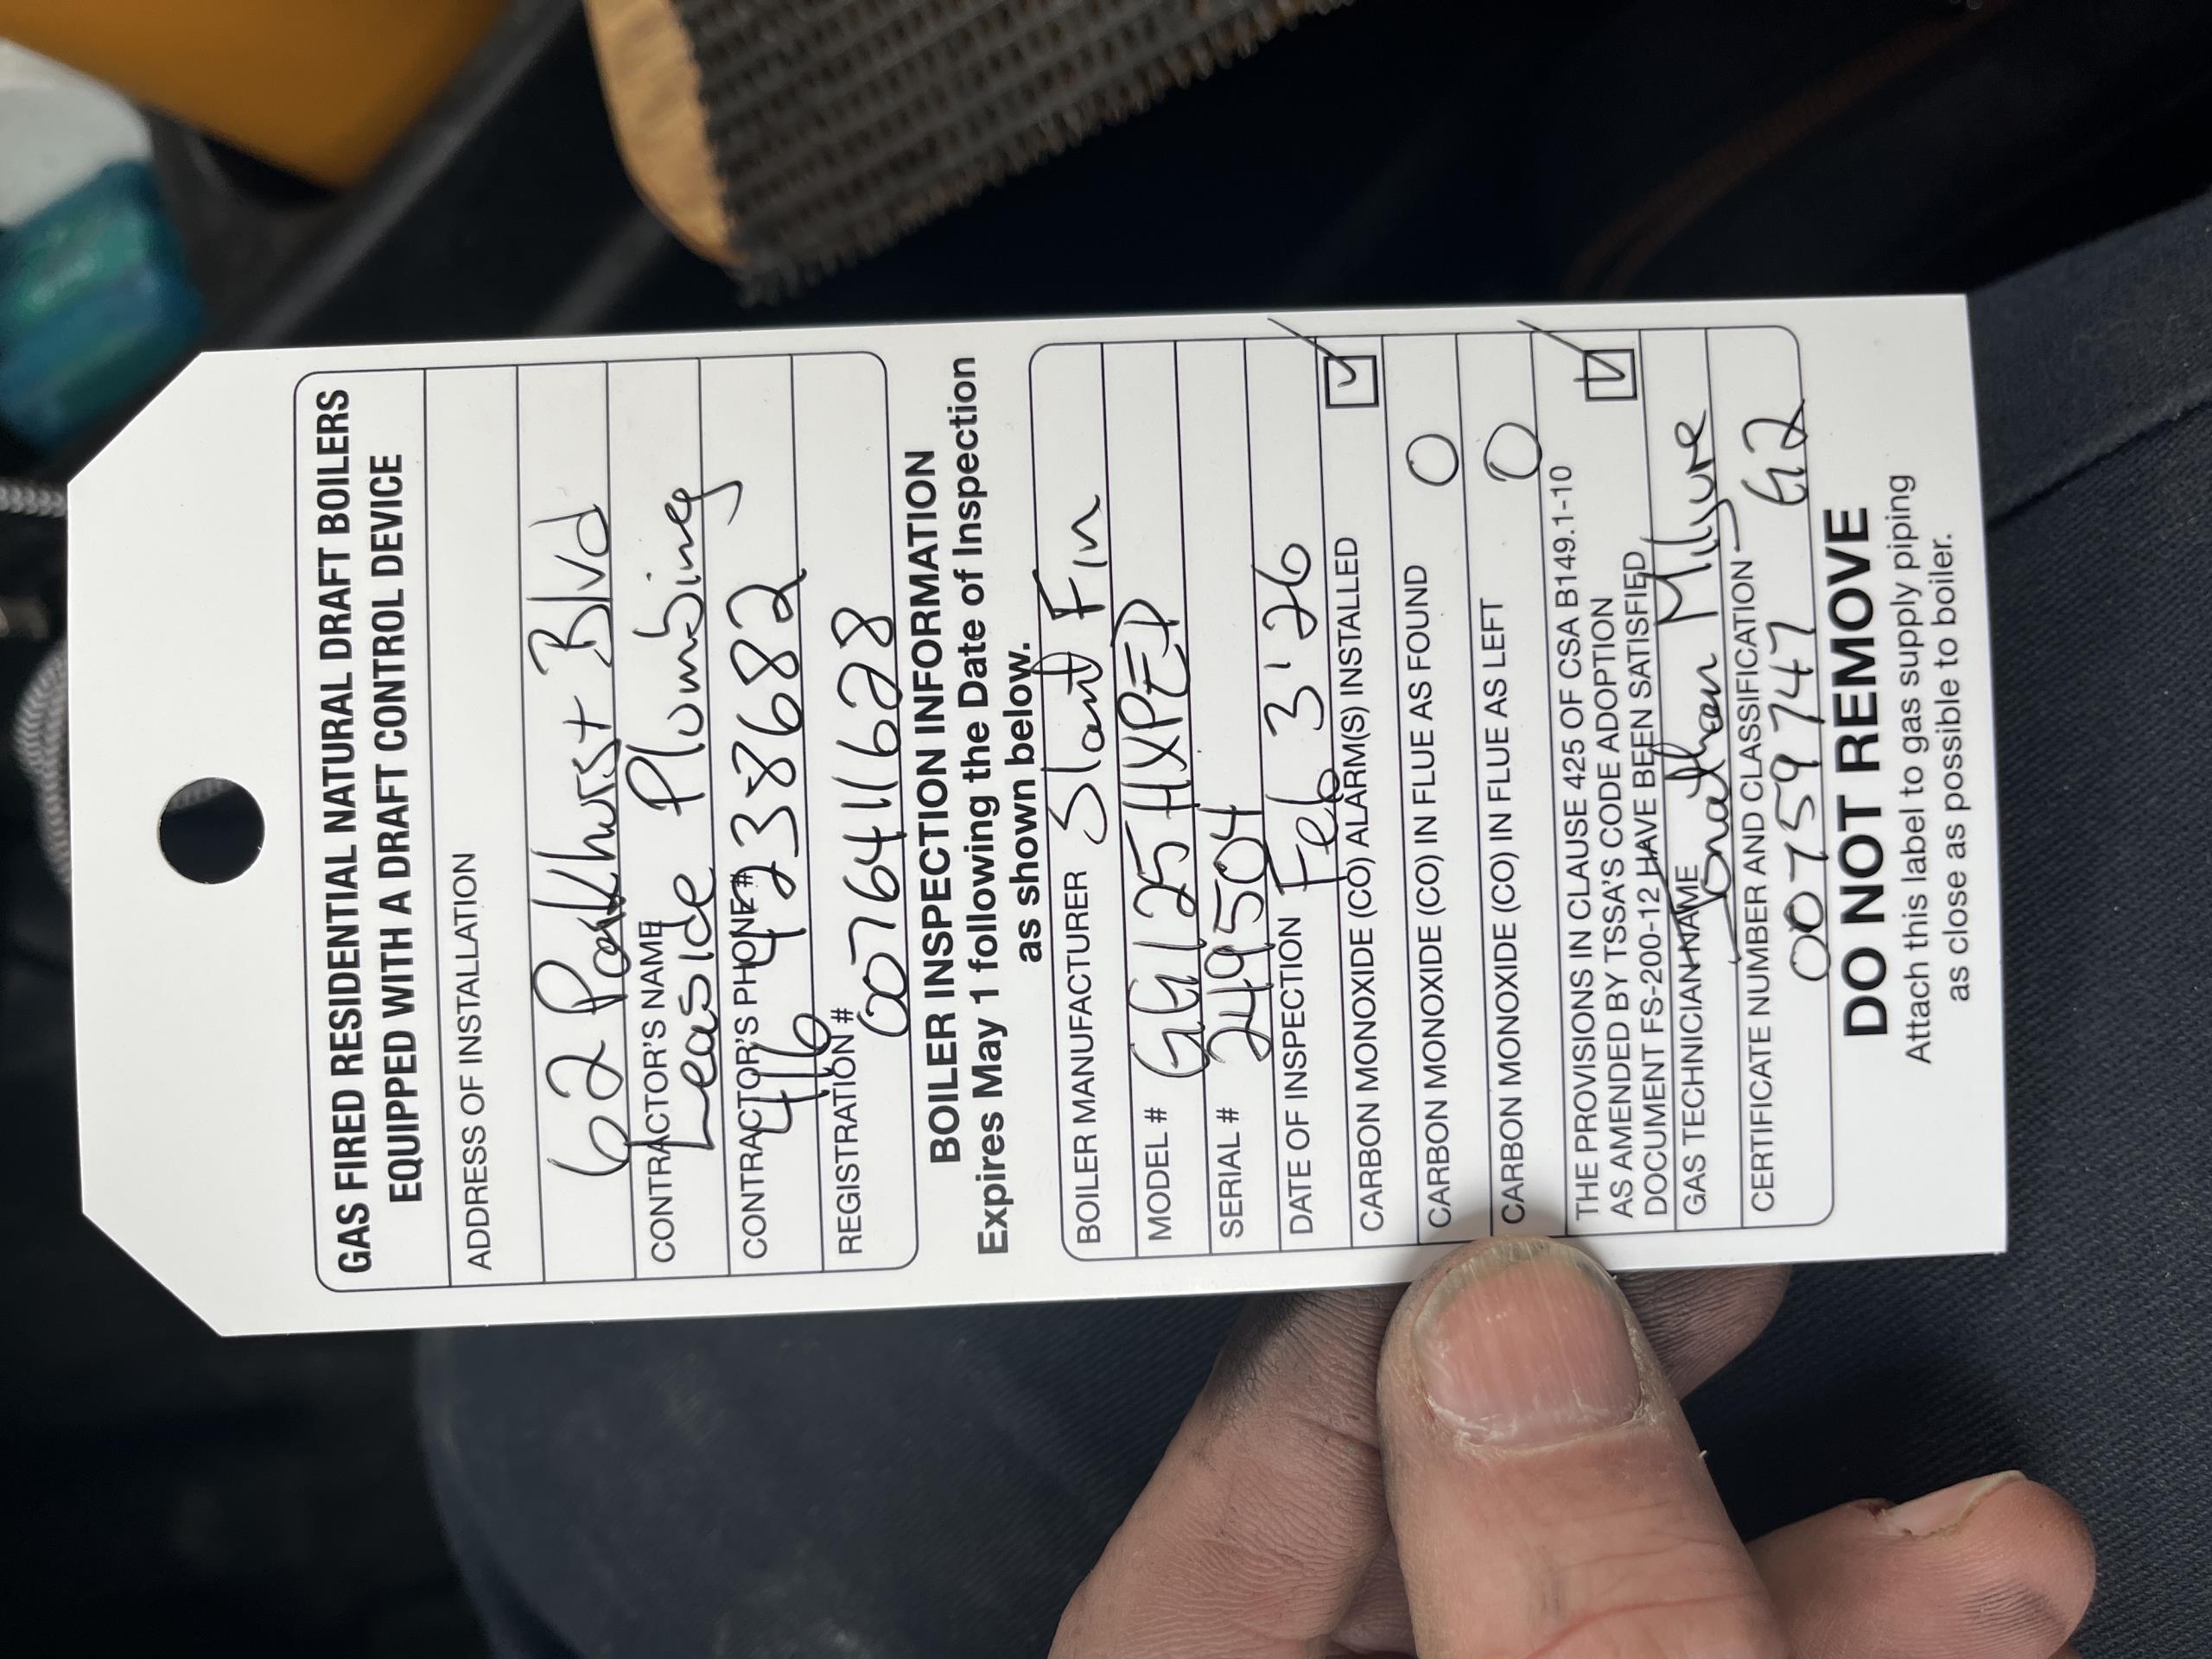 GAS FIRED RESIDENTIAL NATURAL DRAFT BOILERS
EQUIPPED WITH A DRAFT CONTROL DEVICE
ADDRESS OF INSTALLATION
62 Parkhurst Blvd
CONTRACTOR'S NAME
Leaside Plumbing
CONTRACTOR'S PHONE #
416 4238682
REGISTRATION #
0076411628
BOILER INSPECTION INFORMATION
Expires May 1 following the Date of Inspection
as shown below.
BOILER MANUFACTURER Slant Fin
MODEL # GG125HXPED
SERIAL # 249504
DATE OF INSPECTION Feb 3'26
CARBON MONOXIDE (CO) ALARM(S) INSTALLED
CARBON MONOXIDE (CO) IN FLUE AS FOUND 0
CARBON MONOXIDE (CO) IN FLUE AS LEFT 0
THE PROVISIONS IN CLAUSE 425 OF CSA B149.1-10
AS AMENDED BY TSSA'S CODE ADOPTION
DOCUMENT FS-200-12 HAVE BEEN SATISFIED
GAS TECHNICIAN NAME Jonathan
CERTIFICATE NUMBER AND CLASSIFICATION
00759747 G2
DO NOT REMOVE
Attach this label to gas supply piping
as close as possible to boiler.